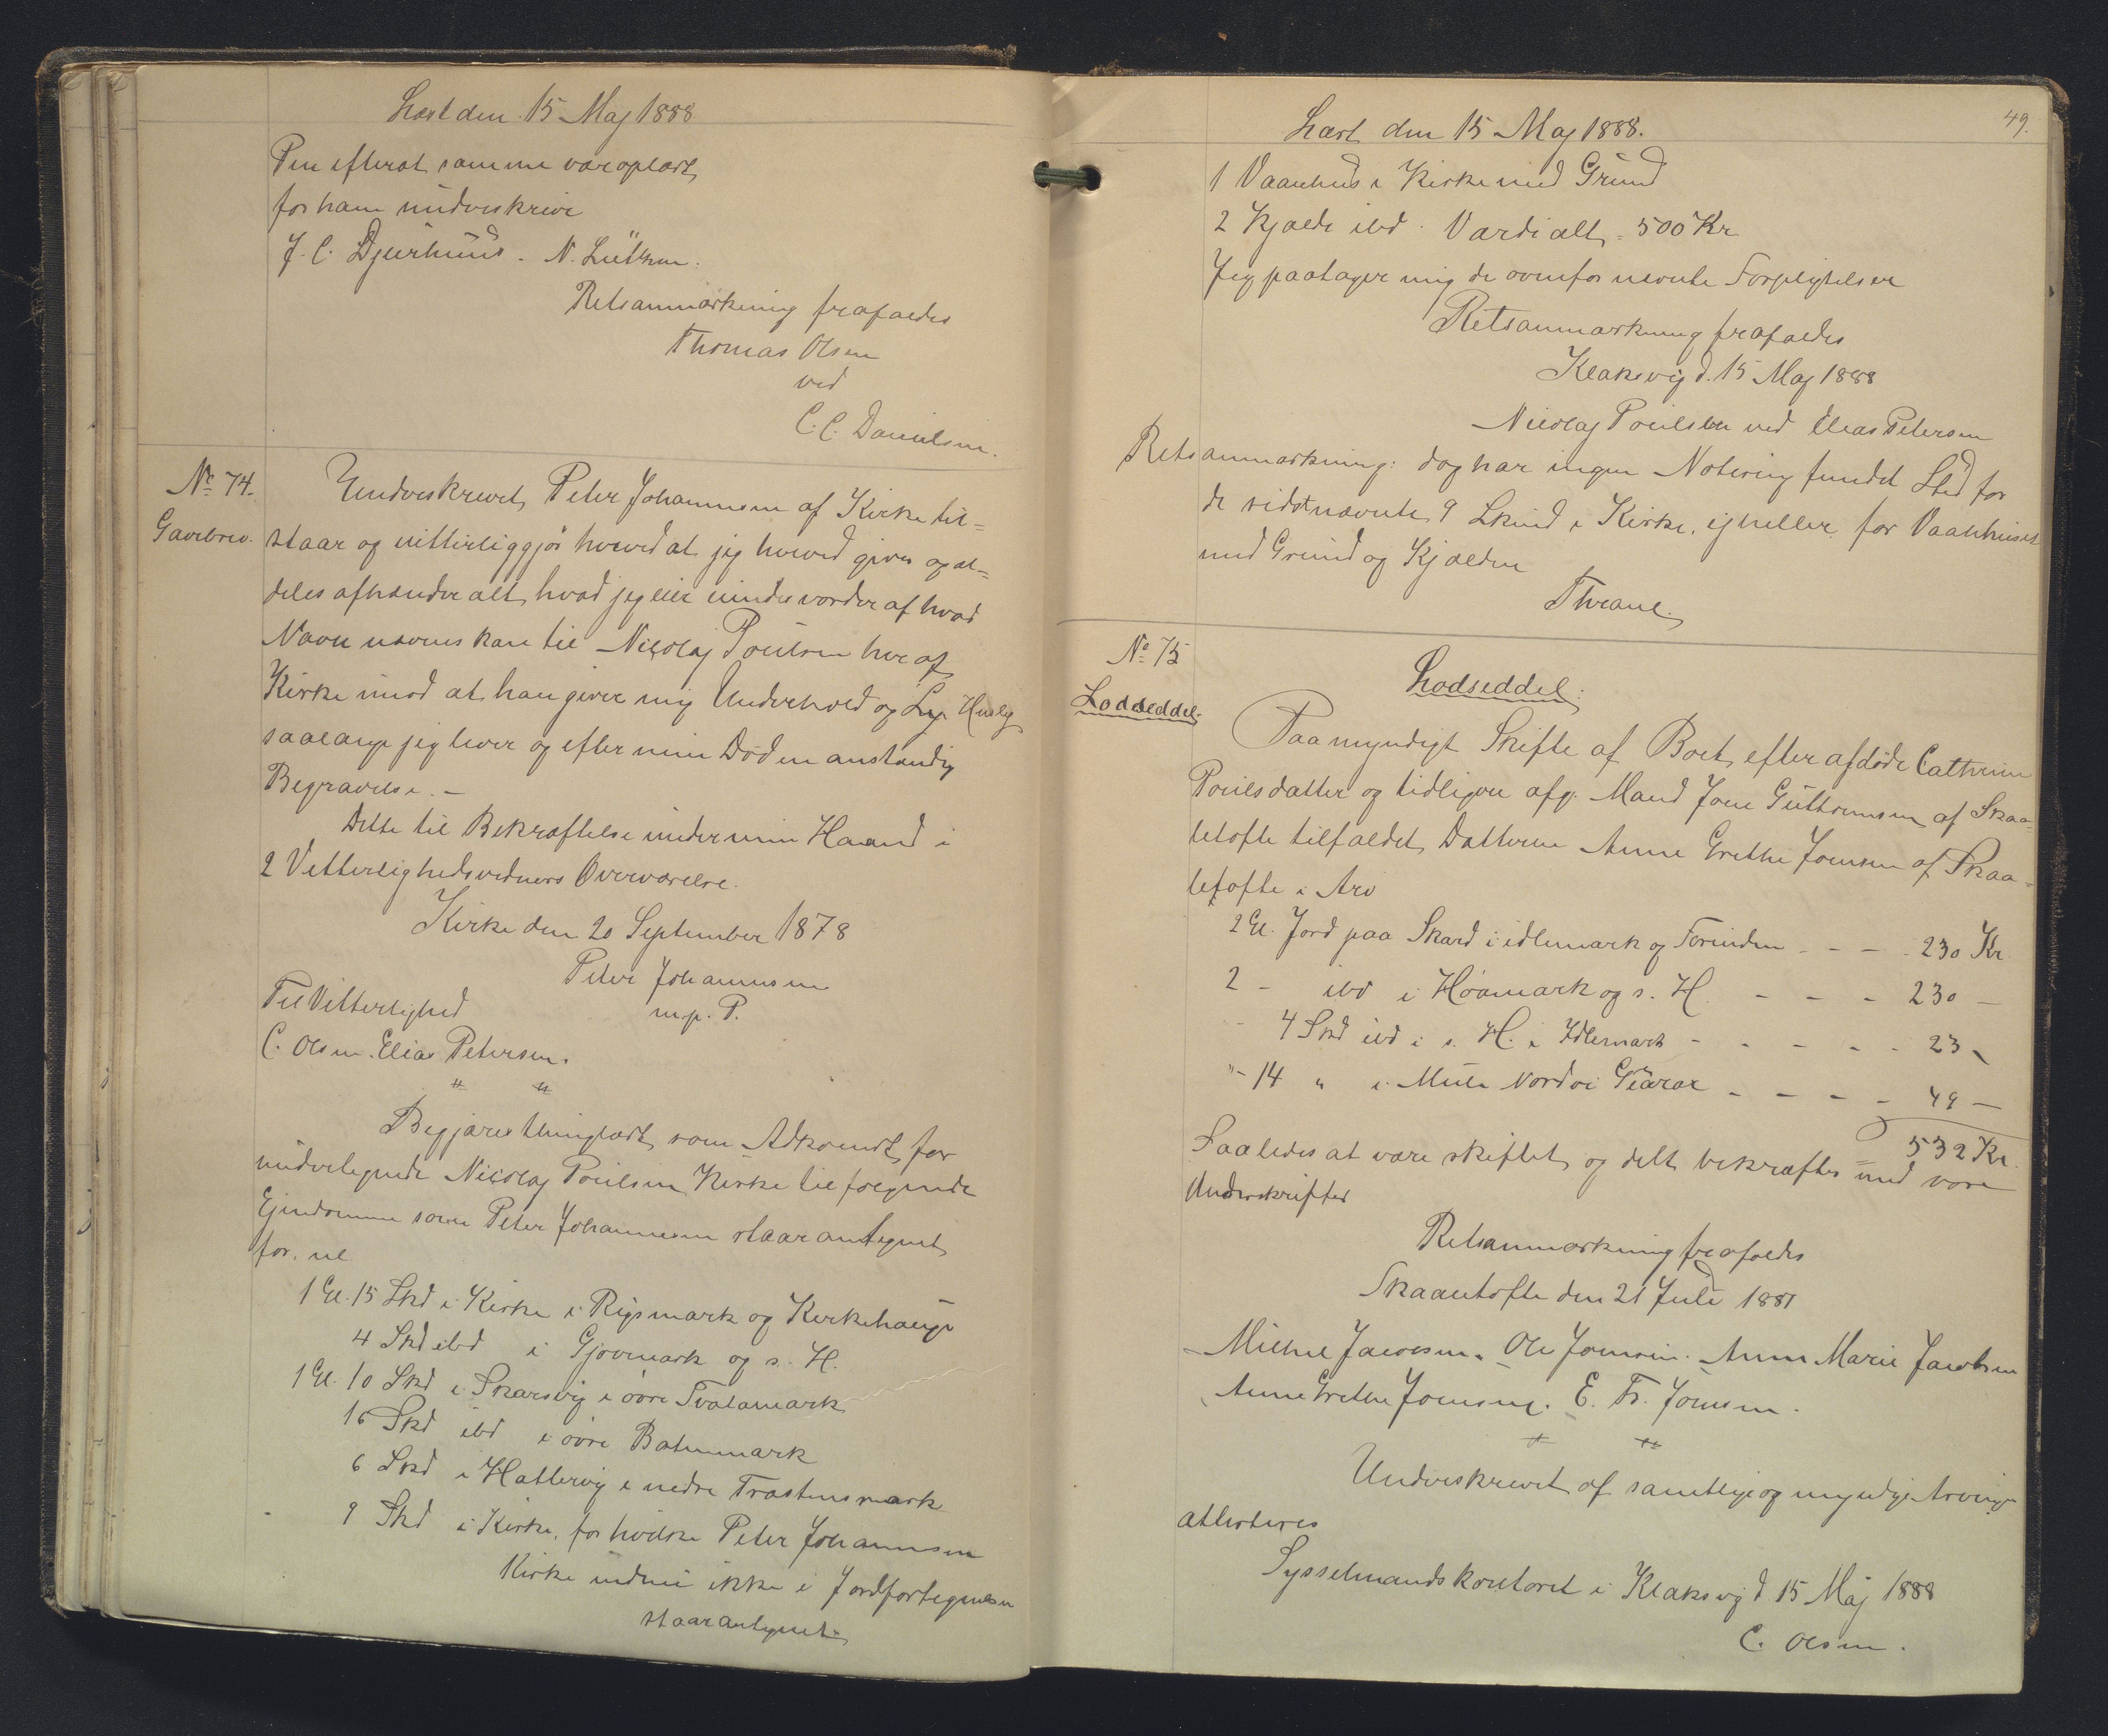 Læst den 15 Maj 1888
Pen efterat samme var oplæst
for ham underskrive
J. C. Djurhuus. N. Lützen.
Retsanmærkning frafaldes
Thomas Olsen
ved
C. C. Danielsen.
No 74.
Gavebrev.
Underskrevet Peter Johannesen af Kirke til=
staar og vitterliggjør herved at jeg herved giver og al=
deles afhænder alt hvad jeg eier
Navn nævnes kan til Nicolaj Poulsen her af
Kirke imod at han giver mig Underhold og Huslÿ
saalænge jeg lever og efter min Død en anstændig
Begravelse. –
Dette til Bekræftelse under min Haand i
2 Vitterlighedsvidners Overværelse.
Kirke den 20 September 1878
Peter Johannesen
m. p. P.
Til Vitterlighed
C. Olsen. Elias Petersen.
Begjæres thinglæst som Adkomst for
undertegnede Nicolaj Poulsen Kirke til følgende
Ejendomme som Peter Johannesen staar antegnet
for, nl.
1 Gl. 15 Skd i Kirke i Rigsmark og Kirkehauge
4 Skd ibd i Gjovmark og s. H.
1 Gl. 10 Skd i Skarsvig i øvre Tvatamark
16 Skd ibd i øvre Batnmark
6 Skd i Hattervig i nedre Trostensmark
9 Skd i Kirke, for hvilke Peter Johannesen
Kirke endnu ikke i Jordfortegnelsen
staar antegnet.
49.
Læst den 15 Maj 1888.
1 Vaanhus i Kirke med Grund
2 Kjælde ibd. Værdi alt = 500 Kr
Jeg paatager mig de ovenfor nævnte Forpligtelser
Retsanmærkning frafaldes
Klaksvig d. 15 Maj 1888
Nicolaj Poulsen ved Elias Petersen
Retsanmærkning: dog har ingen Notering fundet Sted for
de sidstnævnte 9 Skind i Kirke, ej heller for Vaanhuset
med Grund og Kjælden
Thrane.
No 75
Lodseddel.
Lodseddel.
Paa myndigt Skifte af Boet efter afdøde Cathrine
Poulsdatter og tidligere afg. Mand Joen Guttormsen af Skaa=
letofte tilfaldet Datteren Anne Grethe Joensen af Skaa=
letofte i Arv
2 Gl. Jord paa Skard i idlemark og Forinden - - - 230 Kr.
2 - ibd i Høamark og s. H. - - - 230 –
4 Skd ibd i s. H. i Idlemark - - - - - 23 -
"- 14 " i Mule Nordri Giærar - - - - 49 –
532 Kr.
Saaledes at være skiftet og delt bekræftes med vore
Underskrifter
Retsanmærkning frafaldes
Skaaletofte den 21 Juli 1881
Michel Jacobsen. Ole Joensen. Anne Marie Jacobsen
Anne Grethe Joensen. E. Fr. Joensen.
Underskrevet af samtlige og myndige Arvinger
attesteres
Sysselmandskontoret i Klaksvig d 15 Maj 1888
C. Olsen.